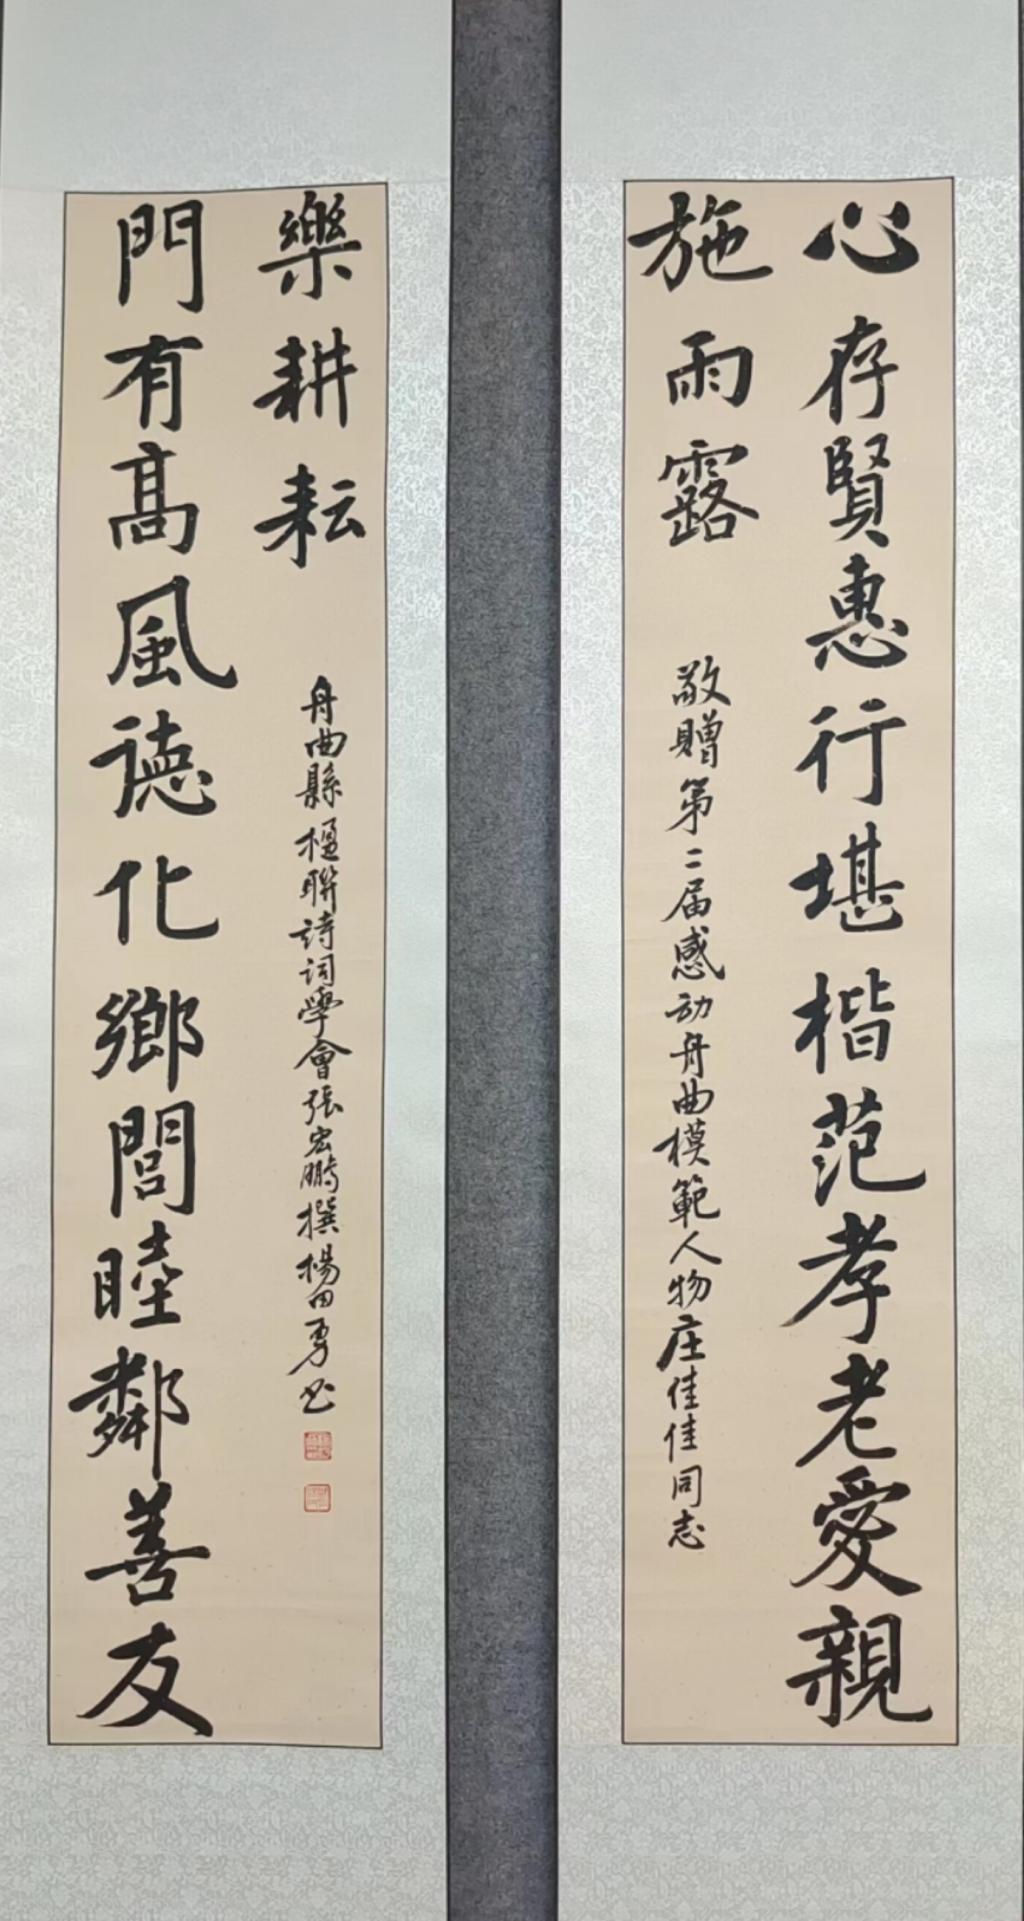 心存賢惠行堪楷范孝老愛親
施雨露
敬贈第二届感动舟曲模範人物庄佳佳同志
門有高風德化鄉閭睦鄰善友
樂耕耘
舟曲縣楹聯詩词學會張宏鵬撰楊田勇书